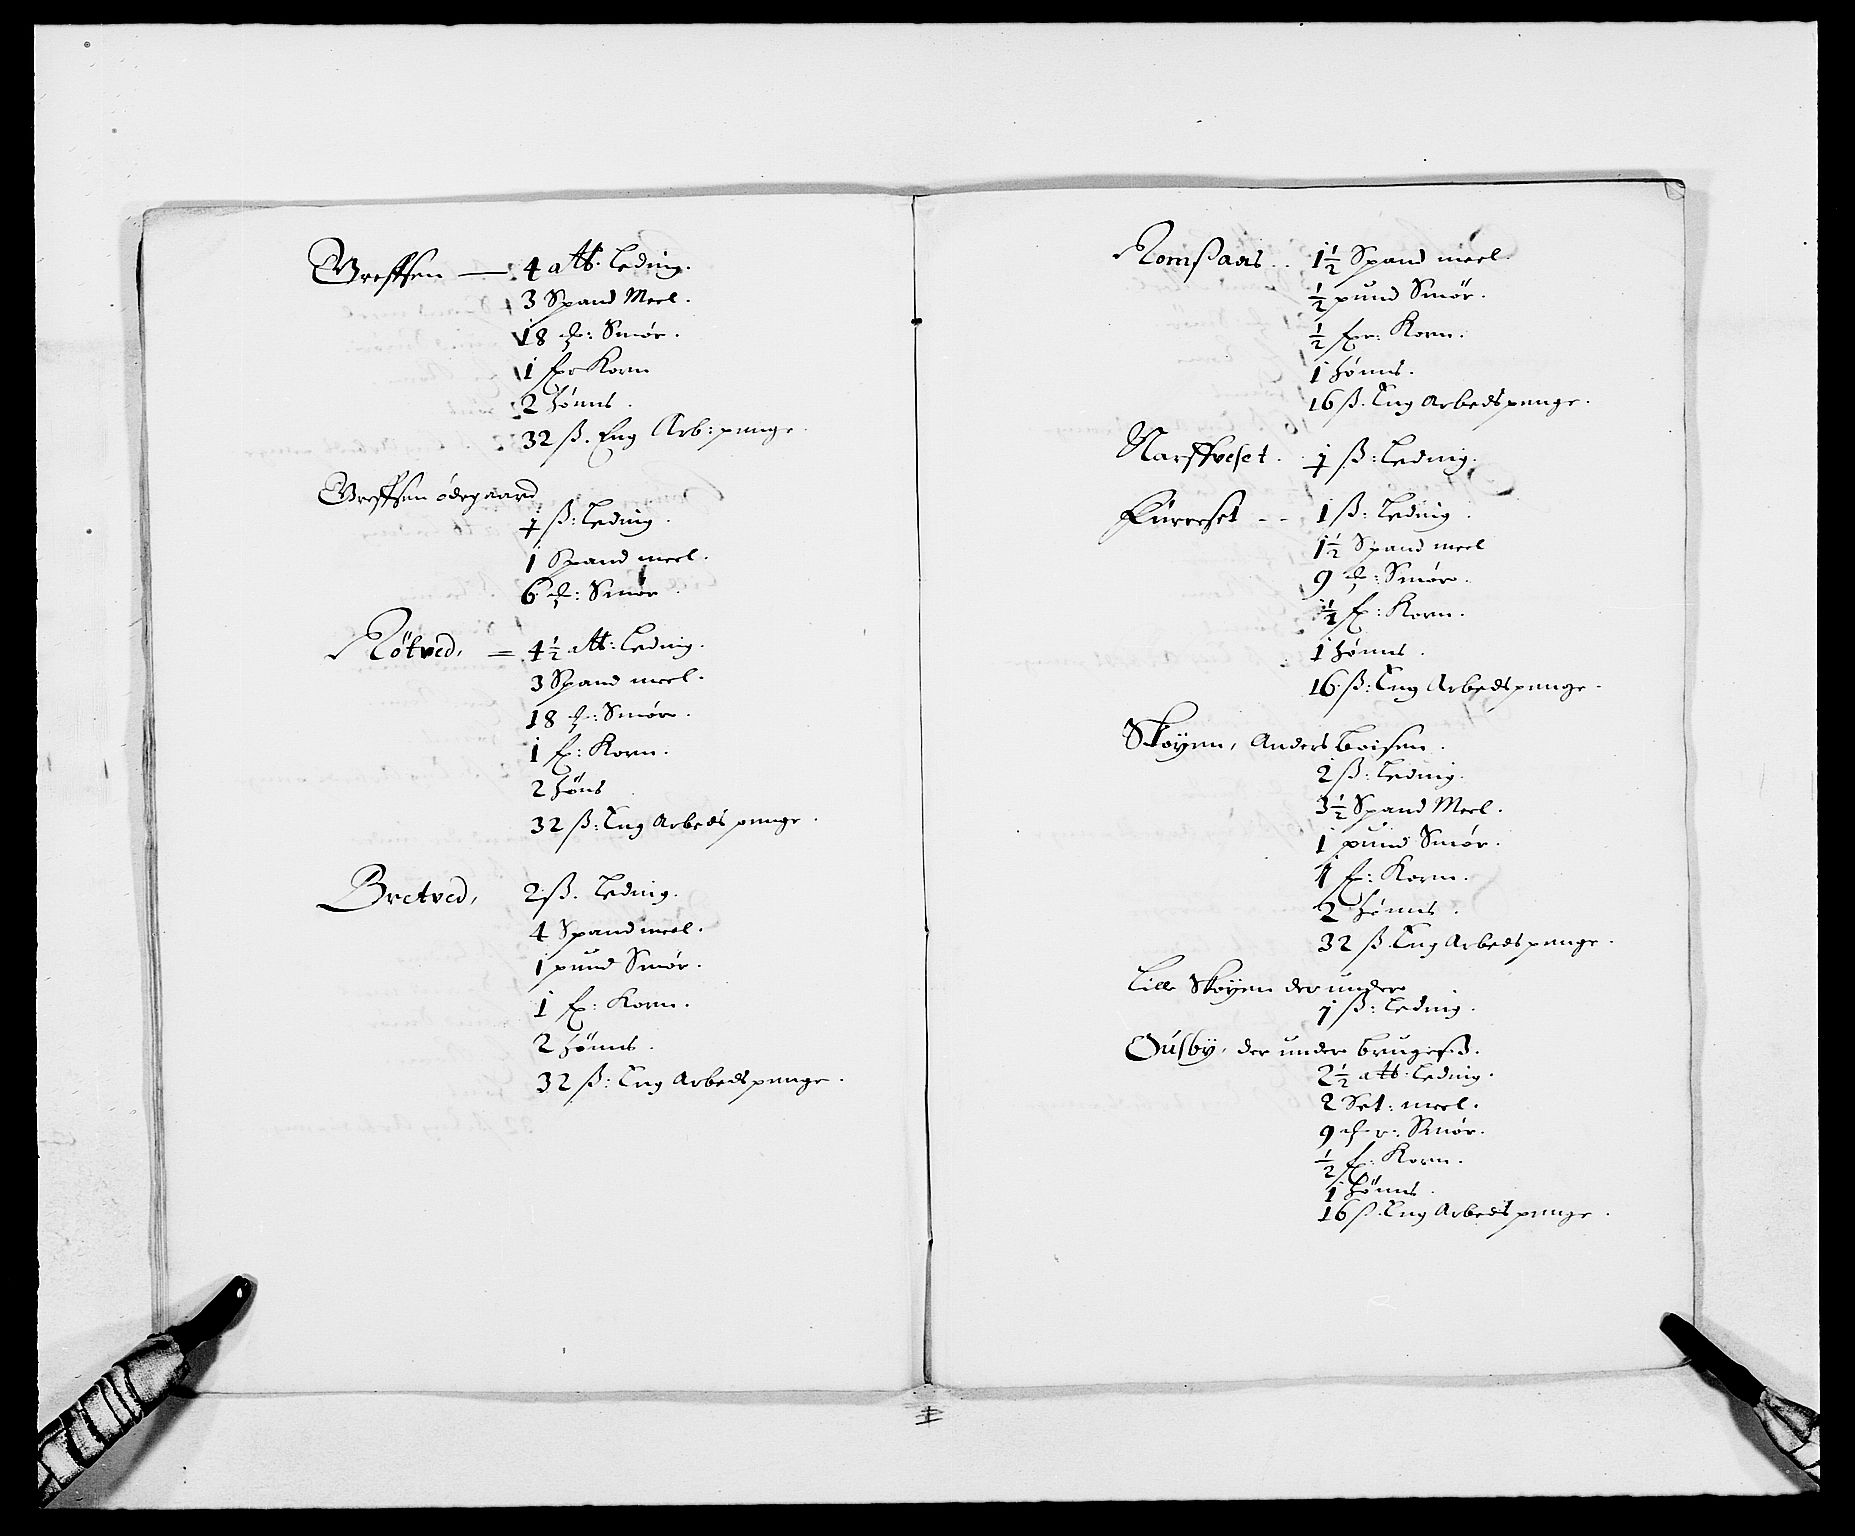 Greffsen — 4 att: Leding.
3 Spand Meel.
18 ℔: Smør.
1 fxr Korn
2 Høns.
32 ß. Eng Arb: penge.
Greffsen ødegaard
1 ß: Leding.
1 Spand meel.
6 ℔: Smør.
Røtved, = 4½ att: Leding.
3 Spand meel.
18 ℔: Smør.
1 fx: Korn.
2 Høns
32 ß: Eng Arbeds penge.
Bretved, 2 ß. Leding.
4 Spand meel.
1 pund Smør.
1 fx: Korn.
2 Høns.
32 ß: Eng Arbedspenge.
Romßaas.. 1½ Spand meel.
½ pund Smør.
½ fxr: Korn.
1 Høns.
16 ß. Eng Arbedspenge.
Narffveset. 1 ß: Leding.
Furreset -- 1 ß: Leding.
1½ Spand meel
9 ℔: Smør.
½ fx: Korn.
1 Høns.
16 ß: Eng Arbedspenge.
Skøyen, Anders Boisen.
2 ß: Leding.
3½ Spand Meel.
1 pund Smør.
1 fx: Korn.
2 Høns.
32 ß. Eng Arbedspenge.
Lille Skøyen der under
1 ß: Leding.
Ousby, der under brugeß.
2½ att: Leding.
2 Set: meel.
9 ℔r: Smør.
½ fx: Korn.
1 Høns.
16 ß. Eng Arbedspenge.